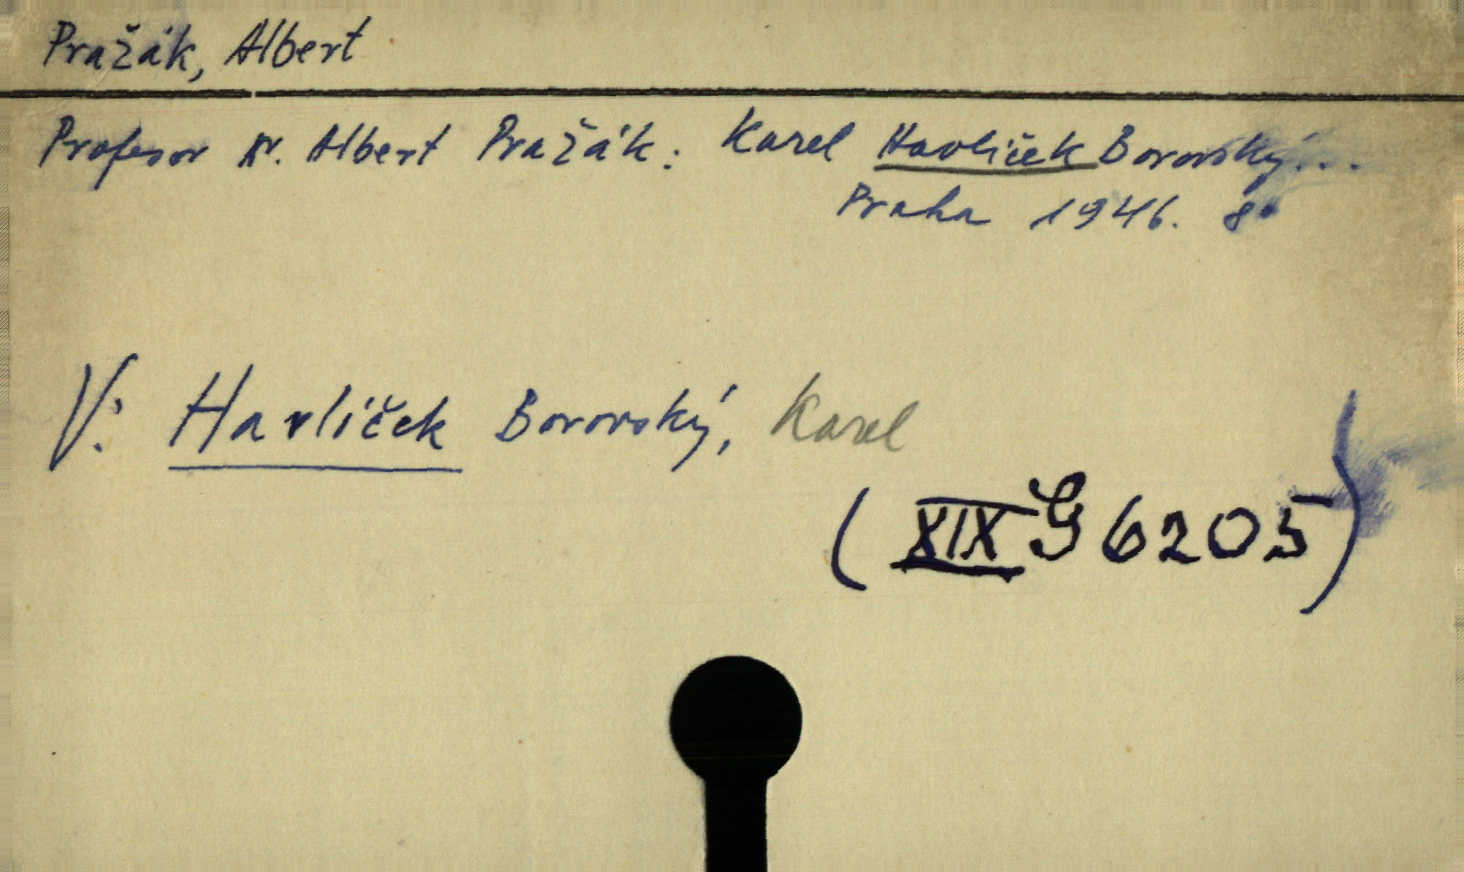 Pražák, Albert
Profesor Dr. Albert Pražák: Karel Havlíček Borovský...
Praha 1946. 8°
V: Havlíček Borovský, Karel
(XIX G 6205)